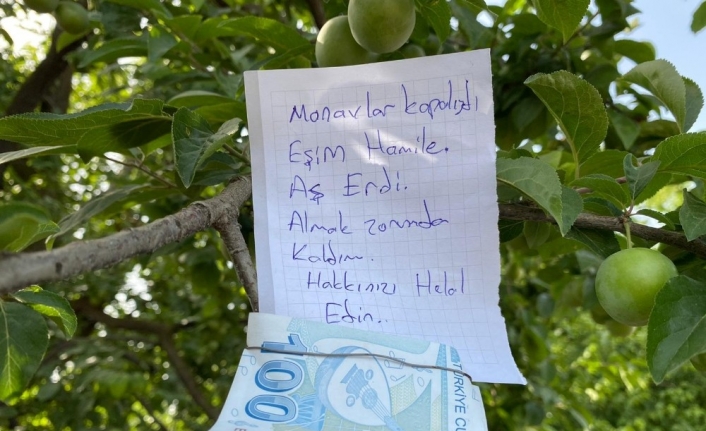 Manavlar kapalıydı
Eşim Hamile.
Aş Erdi.
Almak zorunda
Kaldım.
Hakkınızı Helal
Edin..
100
TÜRKİYE CU